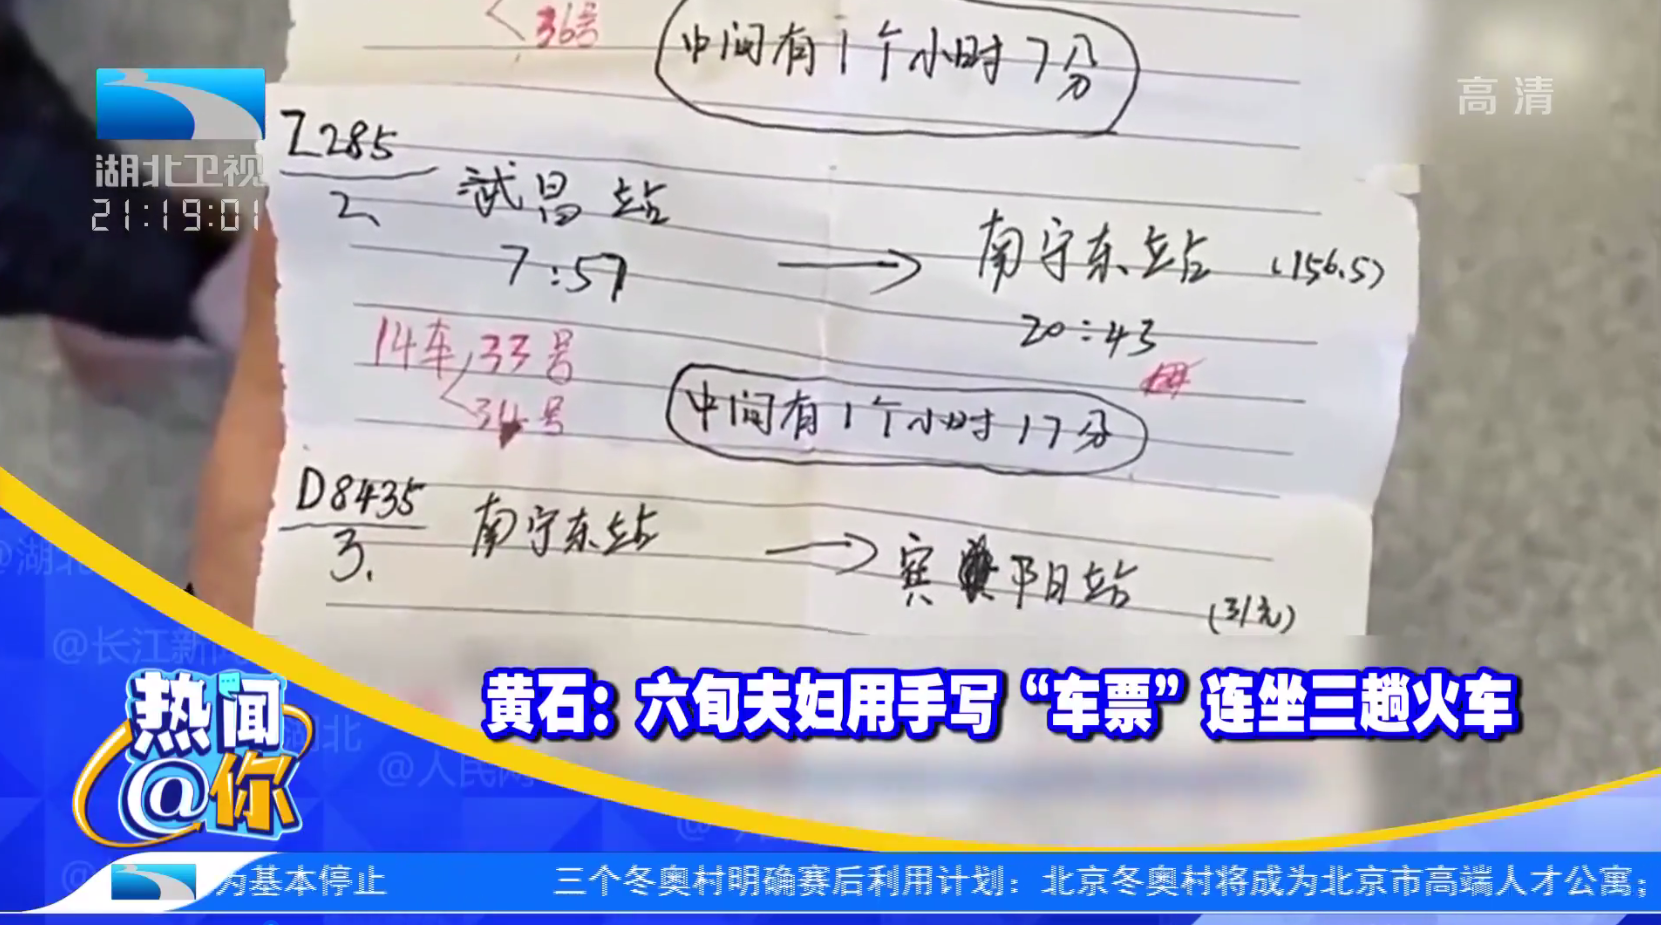 36号
中间有1个小时7分
高清
Z285
湖北卫视
21:19:01
2、
武昌站
南宁东站 (156.5)
7:57
20:43
14车,33号
34号
中间有1个小时17分
D8435
3.
南宁东站
宾阳站
(31元)
@湖北
@长江新闻
黄石：六旬夫妇用手写“车票”连坐三趟火车
热闻
@你
湖北
@人民网
为基本停止 三个冬奥村明确赛后利用计划：北京冬奥村将成为北京市高端人才公寓；